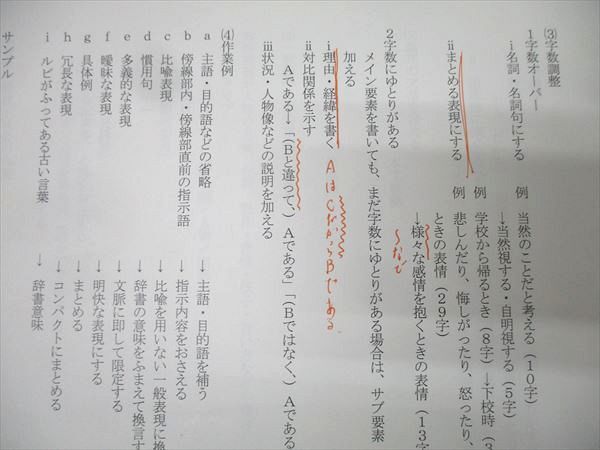 ⑶字数調整
１字数オーバー
ⅰ名詞・名詞句にする　例　当然のことだと考える（１０字）
→当然視する・自明視する（５字）
例　学校から帰るとき（８字）→下校時（３
ⅱまとめる表現にする　例　悲しんだり、悔しがったり、怒ったり、
ときの表情（２９字）
→様々な感情を抱くときの表情（１３字
〜など
２字数にゆとりがある
メイン要素を書いても、まだ字数にゆとりがある場合は、サブ要素
加える
ⅰ理由・経緯を書く　ＡはＣだからＢである
ⅱ対比関係を示す
Ａである→「（Ｂと違って、）Ａである」「（Ｂではなく、）Ａである
ⅲ状況・人物像などの説明を加える
⑷作業例
ａ　主語・目的語などの省略　→　主語・目的語を補う
ｂ　傍線部内・傍線部直前の指示語　→　指示内容をおさえる
ｃ　比喩表現　→　比喩を用いない一般表現に換
ｄ　慣用句　→　辞書の意味をふまえて換言す
ｅ　多義的な表現　→　文脈に即して限定する
ｆ　曖昧な表現　→　明快な表現にする
ｇ　具体例　→　まとめる
ｈ　冗長な表現　→　コンパクトにまとめる
ｉ　ルビがふってある古い言葉　→　辞書意味
サンプル